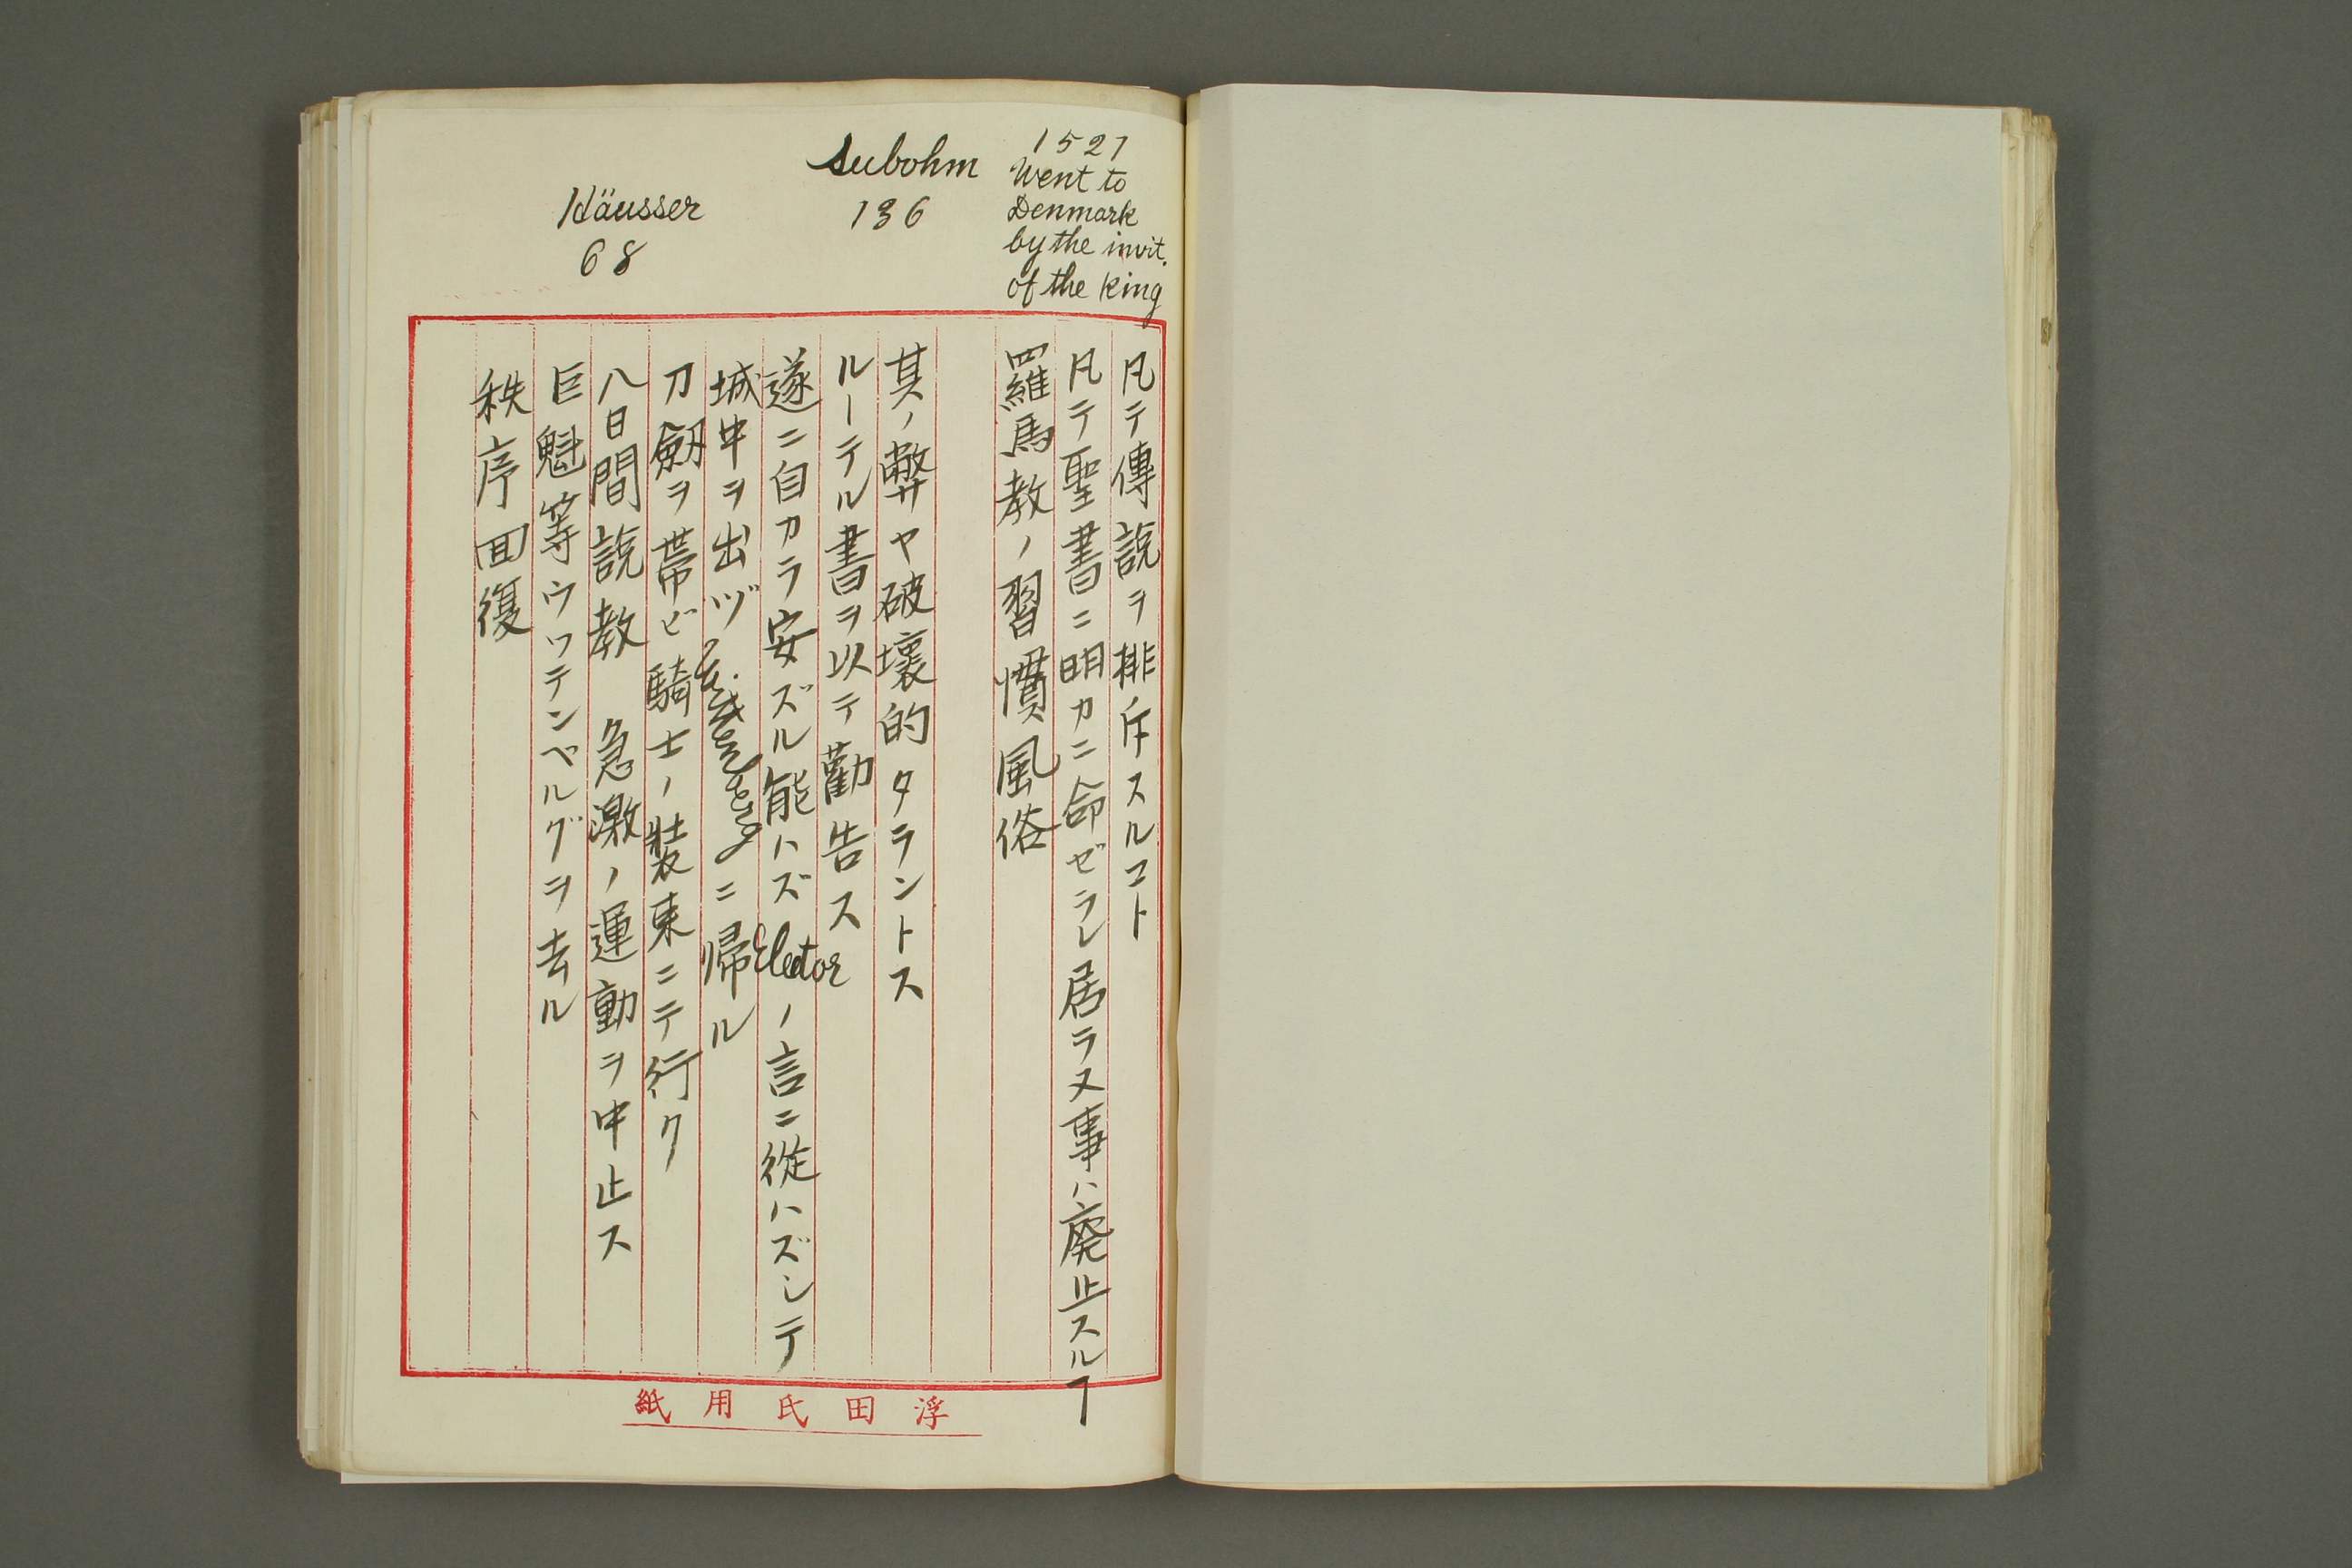 1527
Went to
Denmark
by the invit.
of the King
Seebohm
136
Häusser
68
凡テ傳說ヲ排斥スルコト
凡テ聖書ニ明カニ命ゼラレ居ラヌ事ハ廃止スルヿ
羅馬教ノ習慣風俗
其ノ弊ヤ破壊的タラントス
ルーテル書ヲ以テ勸告ス
遂ニ自カラ安ズル能ハズElectorノ言ニ從ハズシテ
城中ヲ出ヅ ニ帰ル
刀劔ヲ帯ビ騎士ノ装束ニテ行ク
八日間說教 急激ノ運動ヲ中止ス
巨魁等ウヮテンベルグヲ去ル
秩序回復
浮田氏用紙